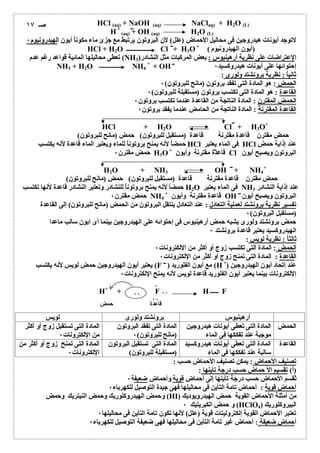 صـ ١٧
HCl (aq) + NaOH (aq) NaCl(aq) + H2O (L)
H+(aq) + OH-(aq) H2O (L)
لاتوجد أيونات هيدروجين فى محاليل الأحماض (علل) لأن البروتون يرتبط مع جزئ ماء مكوناً أيون الهيدرونيوم٠
HCl + H2O Cl- + H3O+ (أيون الهيدرونيوم)
الإعتراضات على نظرية أرهينيوس : بعض المركبات مثل النشادر(NH3) تعطى محاليلها المائية قواعد رغم عدم
إحتوائها على أيونات هيدروكسيد٠ NH3 + H2O NH4+ + OH-
ثانياً : نظرية برونشتد ولورى :
الحمض : هو المادة التى تفقد بروتون (مانح للبروتون)٠
القاعدة : هو المادة التى تكتسب بروتون (مستقبلة للبروتون)٠
الحمض المقترن : المادة الناتجة من القاعدة عندما تكتسب بروتون٠
القاعدة المقترنة : المادة الناتجة من الحامض عندما يفقد بروتون٠
HCl + H2O Cl- + H3O+
حمض مقترن قاعدة مقترنة قاعدة (مستقبل للبروتون) حمض (مانح للبروتون)
عند إذابة حمض HCl فى الماء يعتبر HCl حمضاً لأنه يمنح بروتوناً للماء ويعتبر الماء قاعدة لأنه يكتسب
البروتون ويصبح أيون Cl- قاعدة مقترنة وأيون H3O+ حمض مقترن٠
H2O + NH3 OH- + NH4+
حمض مقترن قاعدة مقترنة قاعدة (مستقبل للبروتون) حمض (مانح للبروتون)
عند إذابة النشادر NH3 فى الماء يعتبر H2O حمضاً لأنه يمنح بروتوناً للنشادر وتعتبر النشادر قاعدة لأنها تكتسب
البروتون ويصبح أيون OH- قاعدة مقترنة وأيون NH4+ حمض مقترن٠
تفسير نظرية برونشتد لعملية التعادل : عند التعادل ينتقل البروتون من الحمض (مانح للبروتون) إلى القاعدة
(مستقبل البروتون)٠
حمض برونشتد ولورى يشبه حمض أرهينيوس فى إحتوائه على الهيدروجين بينما أى أيون سالب ماعدا
الهيدروكسيد يعتبر قاعدة برونشتد ٠
ثالثاً : نظرية لويس :
الحمض : المادة التى تكتسب زوج أو أكثر من الإلكترونات٠
القاعدة : المادة التى تمنح زوج أو أكثر من الإلكترونات٠
عند اتحاد أيون الهيدروجين (H+) مع أيون الفلوريد (F-) يعتبر أيون الهيدروجين حمض لويس لأنه يكتسب
الإلكترونات بينما يعتبر أيون الفلوريد قاعدة لويس لأنه يمنح الإلكترونات٠
H+ + F - H F
قاعدة حمض
أرهينيوس برونشتد ولورى لويس
الحمض المادة التى تعطى أيونات هيدروجين المادة التى تفقد البروتون المادة التى تستقبل زوج أو أكثر
موجبة عند تفككها فى الماء (مانح للبروتون)٠ من الإلكترونات٠
القاعدة المادة التى تعطى أيونات هيدروكسيد المادة التى تستقبل البروتون المادة التى تمنح زوج أو أكثر من
سالبة عند تفككها فى الماء (مستقبلة للبروتون) الإلكترونات٠
تصنيف الأحماض : يمكن تصنيف الأحماض حسب :
(أ) تقسيم الأحماض حسب درجة تأينها :
تقسم الأحماض حسب درجة تأينها إلى أحماض قوية وأحماض ضعيفة٠
أحماض قوية : أحماض تامة التأين فى محاليلها فهى جيدة التوصيل للكهرباء٠
من أمثلة الأحماض القوية حمض الهيدرويوديك (HI) وحمض الهيدروكلوريك وحمض النيتريك وحمض
البيروكلوريك (HClO4) و حمض الكبريتيك ٠
تعتبر الأحماض القوية إلكتروليتات قوية (علل) لأنها تكون تامة التأين فى محاليلها٠
أحماض ضعيفة : أحماض غير تامة التأين فى محاليلها فهى ضعيفة التوصيل للكهرباء٠